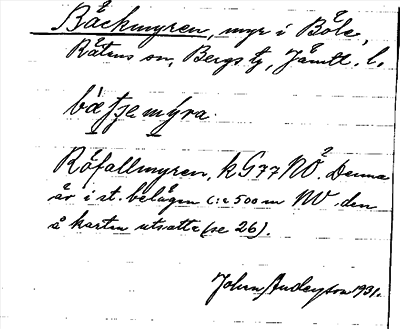 Bäckmyren, myr i Böle,
Rätans sn, Bergs tg, Jämtl. l.
Röfallmyren, k G77 NO². Denna
är i st. belägen c:a 500 m NV. den
å kartan utsatta (se 26).
Johan Anderson 1931.